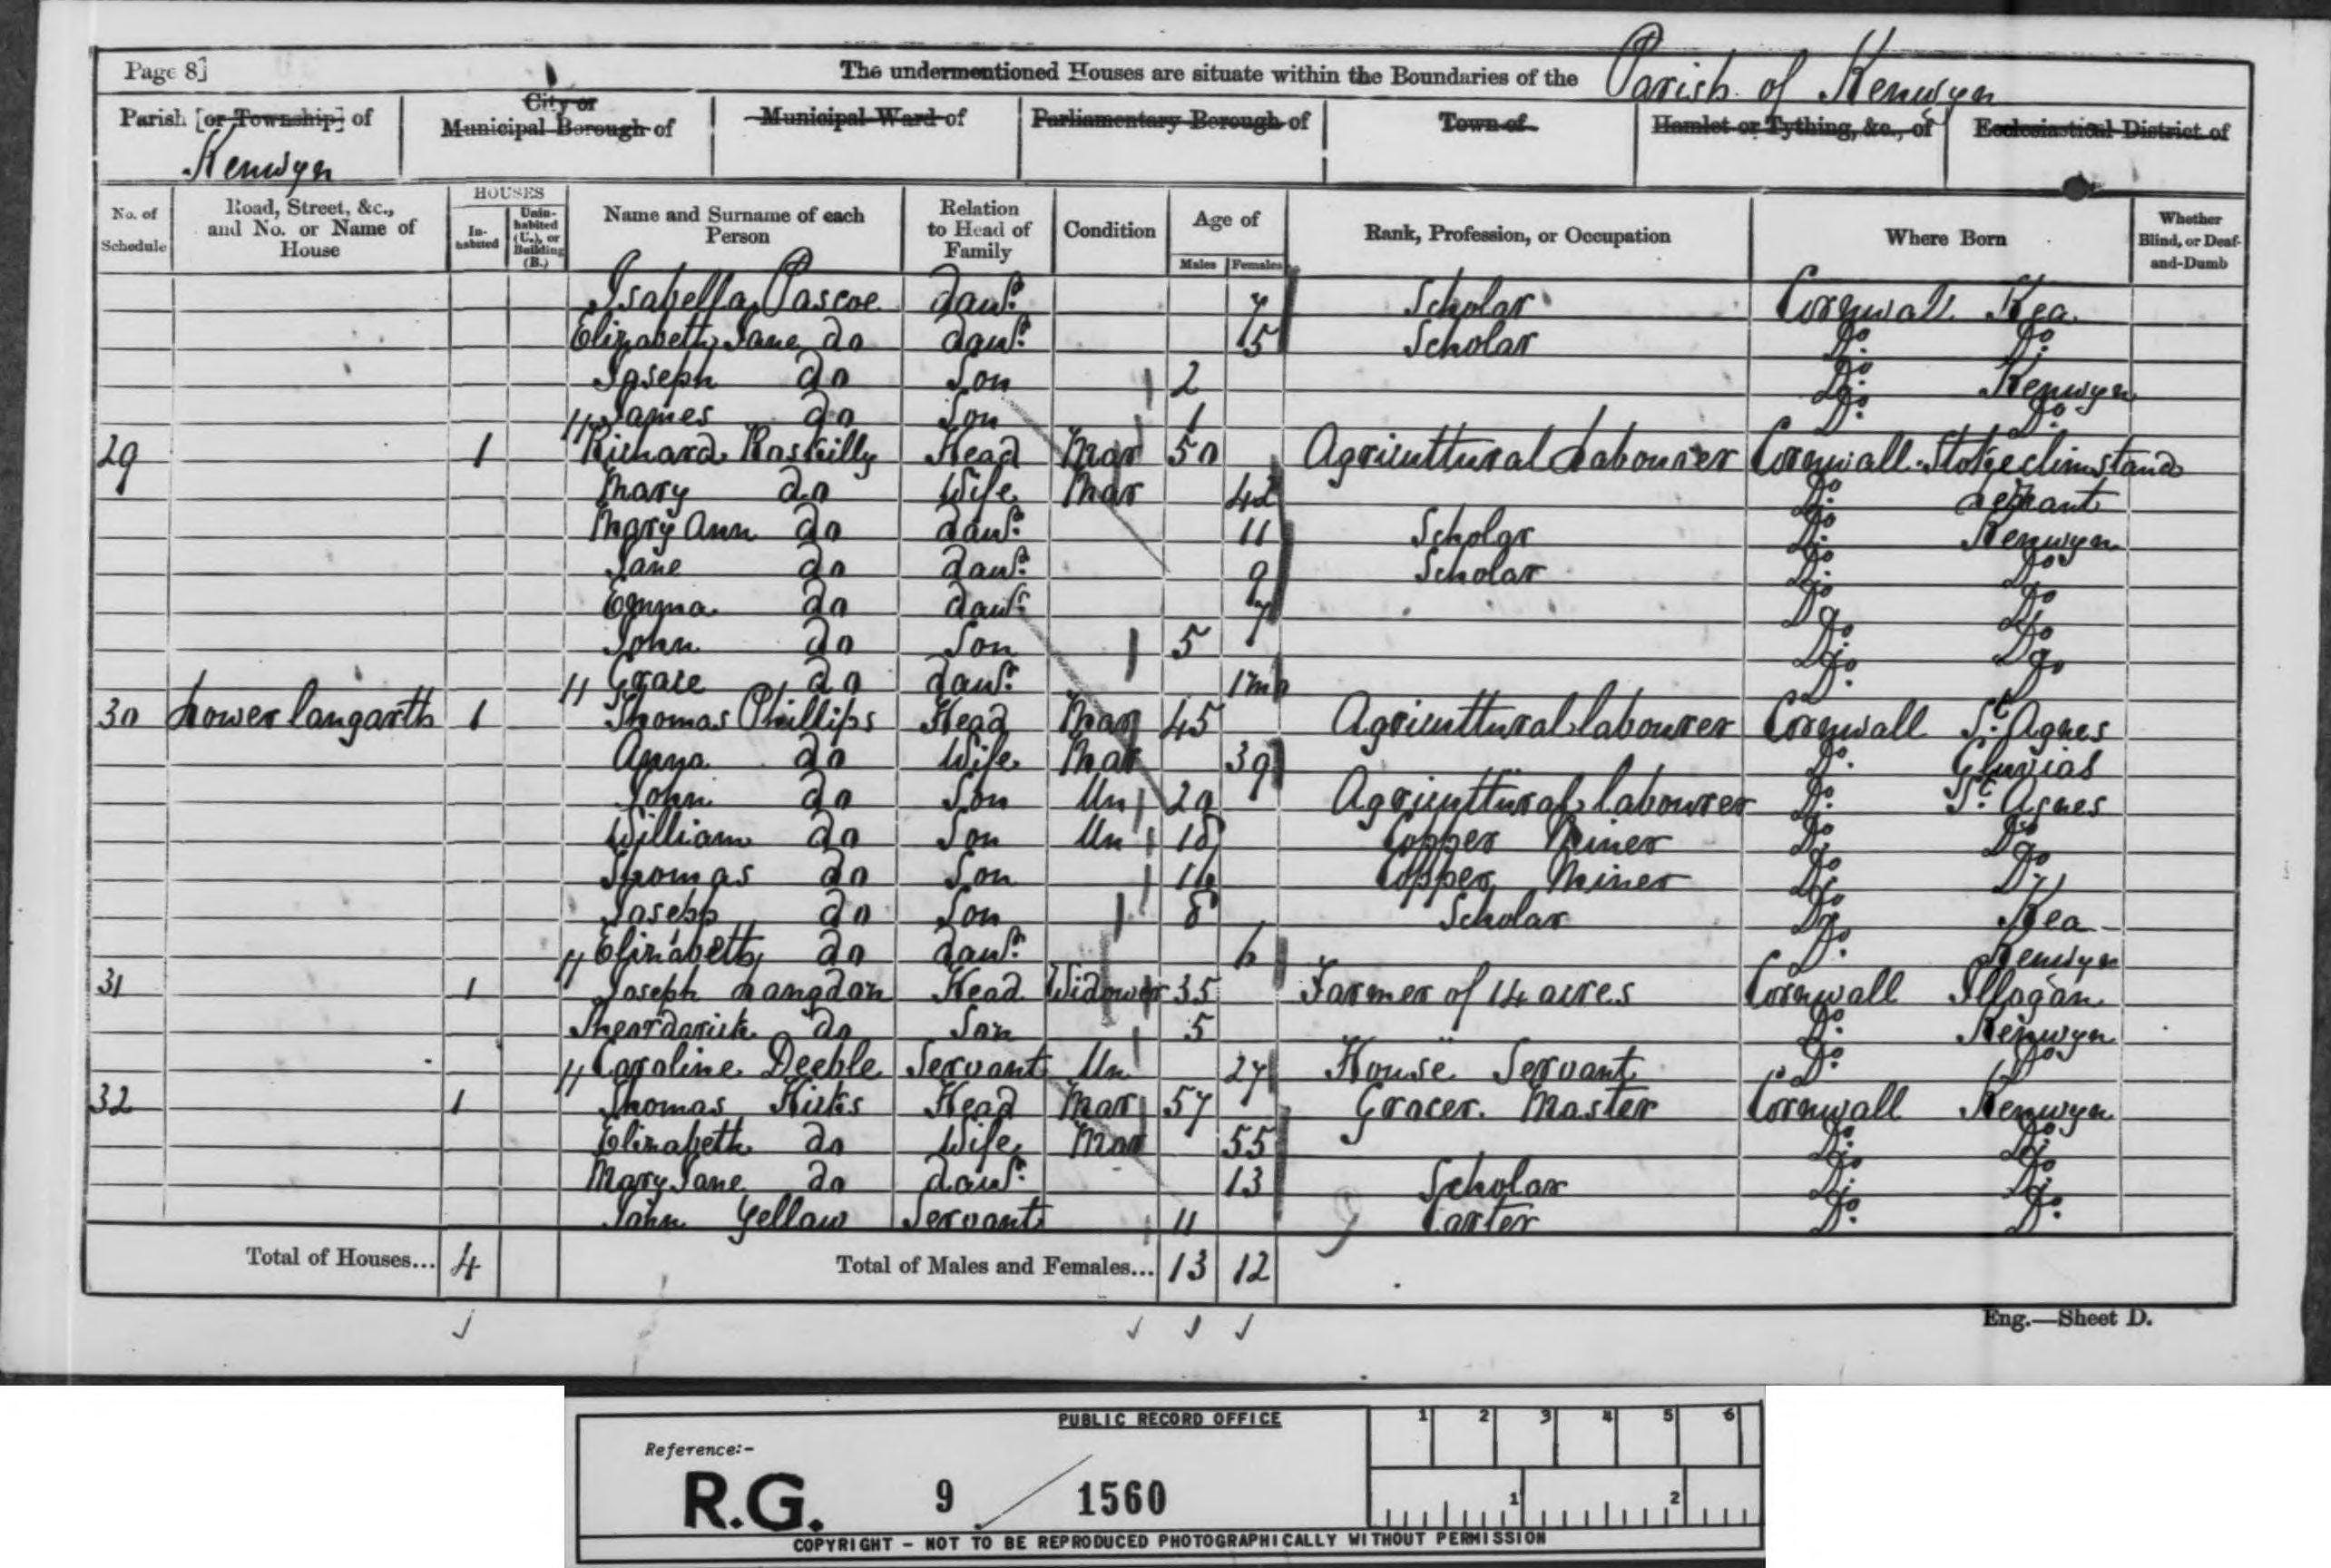 Page 8]
The undermentioned Houses are situate within the Boundaries of the Parish of Kenwyn
Parish [or Township] of Kenwyn
City or Municipal Borough of
Municipal Ward of
Parliamentary Borough of
Town of
Hamlet or Tything, &c., of
Ecclesiastical District of
No. of Schedule
Road, Street, &c., and No. or Name of House
HOUSES
In-habited
Unin-habited (U.), or Building (B.)
Name and Surname of each Person
Relation to Head of Family
Condition
Age of
Males Females
Rank, Profession, or Occupation
Where Born
Whether Blind, or Deaf-and-Dumb
Isabella Pascoe daur. 7 Scholar Cornwall Kea
Elizabeth Jane do daur. 5 Scholar Do. Do.
Joseph do Son 2 Do. Kenwyn
James do Son 1 Do. Do.
29 1 Richard Head Mar 50 Agricultural Labourer Cornwall Stokeclimsland
Mary do Wife Mar 42 Do.
Mary Ann do daur. 11 Scholar Do. Kenwyn
Jane do daur. 9 Scholar Do. Do
Emma do daur. 7 Do. Do
John do Son 5 Do. Do
Grace do daur. 1m Do. Do
30 Lower langarth 1 Thomas Phillips Head Mar 45 Agricultural labourer Cornwall St. Agnes
Anna do Wife Mar 39 Do. Gluvias
John do Son Un 20 Agricultural labourer Do. St. Agnes
William do Son Un 18 Copper Miner Do. Do
Thomas do Son Copper Miner Do. Do
Joseph do Son 8 Scholar Do. Kea
Elizabeth do daur. Do. Kenwyn
31 1 Joseph Langdon Head Widower 35 Farmer of 14 acres Cornwall Illogan
do Son 5 Do. Kenwyn
Caroline Deeble Servant Un 27 House Servant Do. Do
32 1 Thomas Hicks Head Mar 57 Grocer. Master Cornwall Kenwyn
Elizabeth do Wife Mar 55 Do. Do.
Mary Jane do daur. 13 Scholar Do. Do.
John Yellow Servant 11 Carter Do. Do.
Total of Houses... 4
Total of Males and Females... 13 12
Eng.—Sheet D.
PUBLIC RECORD OFFICE
1 2 3 4 5 6
Reference:-
R.G. 9 / 1560
1 2
COPYRIGHT - NOT TO BE REPRODUCED PHOTOGRAPHICALLY WITHOUT PERMISSION